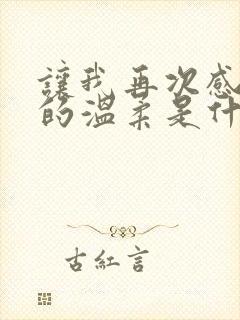 讓我再次感
的溫柔是什
古紅言